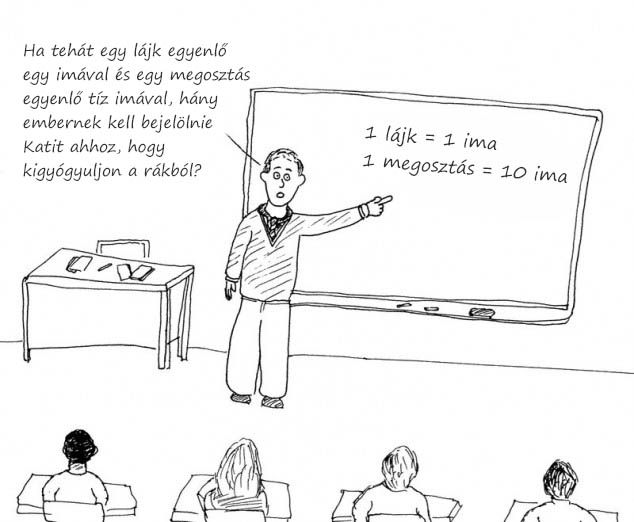 Ha tehát egy lájk egyenlő
egy imával és egy megosztás
egyenlő tíz imával, hány
embernek kell bejelölnie
Katit ahhoz, hogy
kigyógyuljon a rákból?
1 lájk = 1 ima
1 megosztás = 10 ima